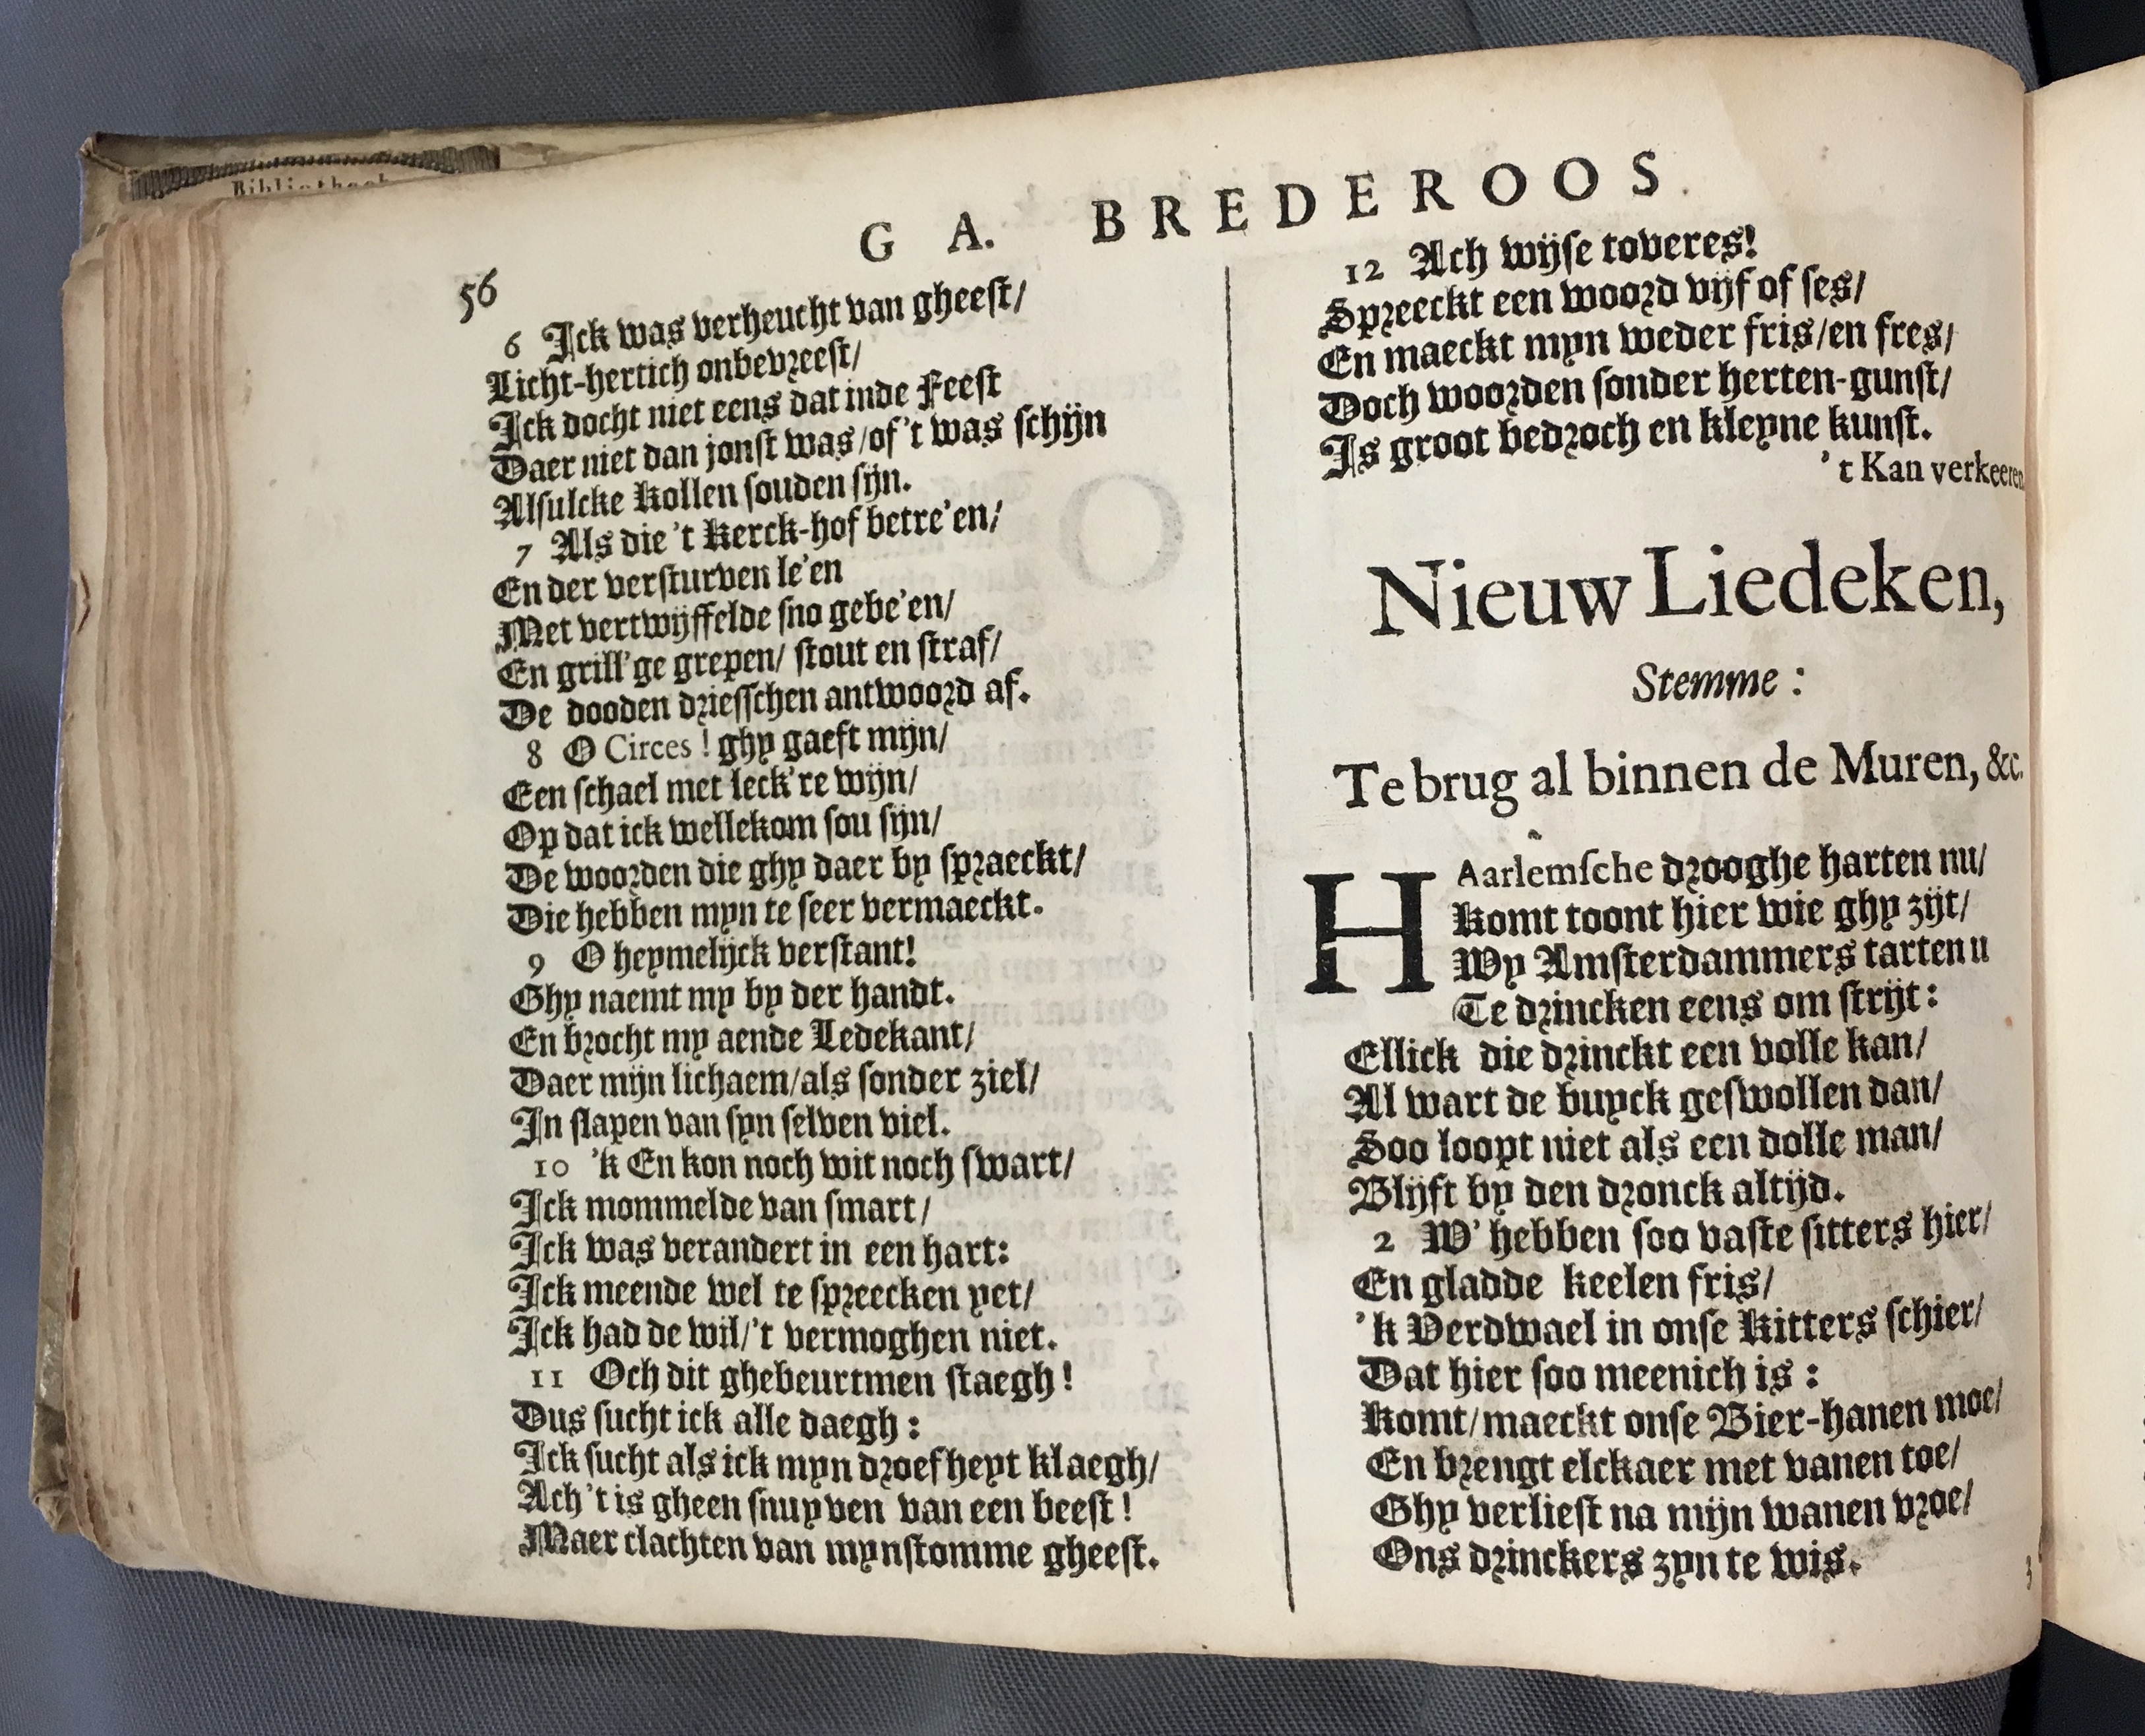 Bibliotheek
G A. BREDEROOS
56
6 Ick was verheucht van gheest/
Licht-hertich onbevreest/
Ick docht niet eens dat inde Feest
Daer niet dan jonst was/of 't was schijn
Alsulcke Kollen souden sijn.
7 Als die 't Kerck-hof betre'en/
En der versturven le'en
Met vertwijffelde sno gebe'en/
En grill'ge grepen/ stout en straf/
De dooden driesschen antwoord af.
8 O Circes ! ghy gaeft mijn/
Een schael met leck're wijn/
Op dat ick wellekom sou sijn/
De woorden die ghy daer by spraeckt/
Die hebben myn te seer vermaeckt.
9 O heymelijck verstant!
Ghy naemt my by der handt.
En brocht my aende Ledekant/
Daer mijn lichaem/als sonder ziel/
In slapen van syn selven viel.
10 'k En kon noch wit noch swart/
Ick mommelde van smart/
Ick was verandert in een hart:
Ick meende wel te spreecken yet/
Ick had de wil/'t vermoghen niet.
11 Och dit ghebeurtmen staegh !
Dus sucht ick alle daegh :
Ick sucht als ick myn droefheyt klaegh/
Ach 't is gheen snuyven van een beest !
Maer clachten van mynstomme gheest.
12 Ach wijse toveres!
Spreeckt een woord vijf of ses/
En maeckt myn weder fris/en fres/
Doch woorden sonder herten-gunst/
Is groot bedroch en kleyne kunst.
't Kan verkeeren.
Nieuw Liedeken,
Stemme :
Te brug al binnen de Muren, &c.
HAarlemsche drooghe harten nu/
Komt toont hier wie ghy zijt/
Wy Amsterdammers tarten u
Te drincken eens om strijt:
Ellick die drinckt een volle kan/
Al wart de buyck geswollen dan/
Soo loopt niet als een dolle man/
Blijft by den dronck altijd.
2 W' hebben soo vaste sitters hier/
En gladde keelen fris/
'k Verdwael in onse Kitters schier/
Dat hier soo meenich is :
Komt/maeckt onse Bier-hanen moe/
En brengt elckaer met vanen toe/
Ghy verliest na mijn wanen vroe/
Ons drinckers zyn te wis.
3